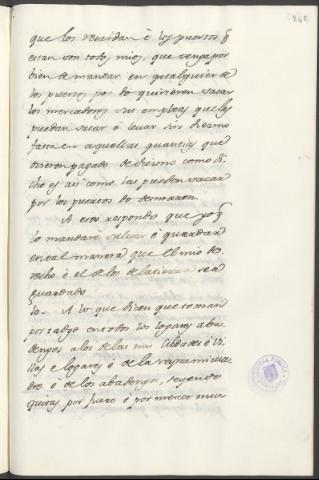 que los recaudan è los puertos q̃
estan son todos mios, que tenga por
bien de mandar en qualquier de
los puertos por do quisieren sacar
los mercadores sus empleos que los
puedan sacar ò levar sin diesmo
fasta en aquellas quantias que
ovieren pagado de diesmo como di
cho es asi como las pueden sacar
por los puertos do dezmaron.
A esto respondo que yo q̃
lo mandarè è guardar
en tal manera que el mio de
recho è el de los de la tierra sea
guardado
Lo. A lo que dicen que toman
portadgo en todos los logares aba
dengos à los de las mis Cibdades è Vi
llas e logares è de la reyna mi ma
dre è de los abadengos, seyendo
quitos por fuero ò por merced mu